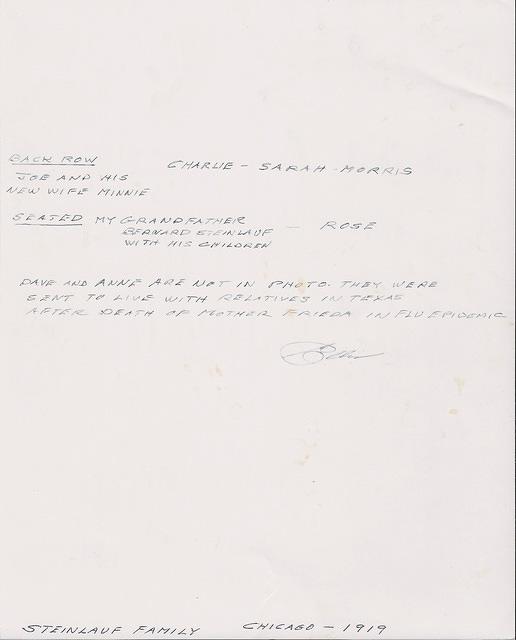 BACK ROW CHARLIE - SARAH - MORRIS
JOE AND HIS
NEW WIFE MINNIE
SEATED MY GRANDFATHER - ROSE
BERNARD STEINLAUF
WITH HIS CHILDREN
DAVE AND ANNE ARE NOT IN PHOTO. THEY WERE
SENT TO LIVE WITH RELATIVES IN TEXAS
AFTER DEATH OF MOTHER FRIEDA IN FLU EPIDEMIC
STEINLAUF FAMILY CHICAGO - 1919